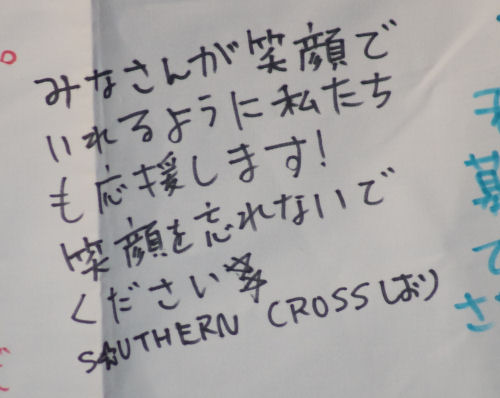 みなさんが笑顔で
いれるように私たち
も応援します!
笑顔を忘れないで
ください
SOUTHERN CROSS しおり